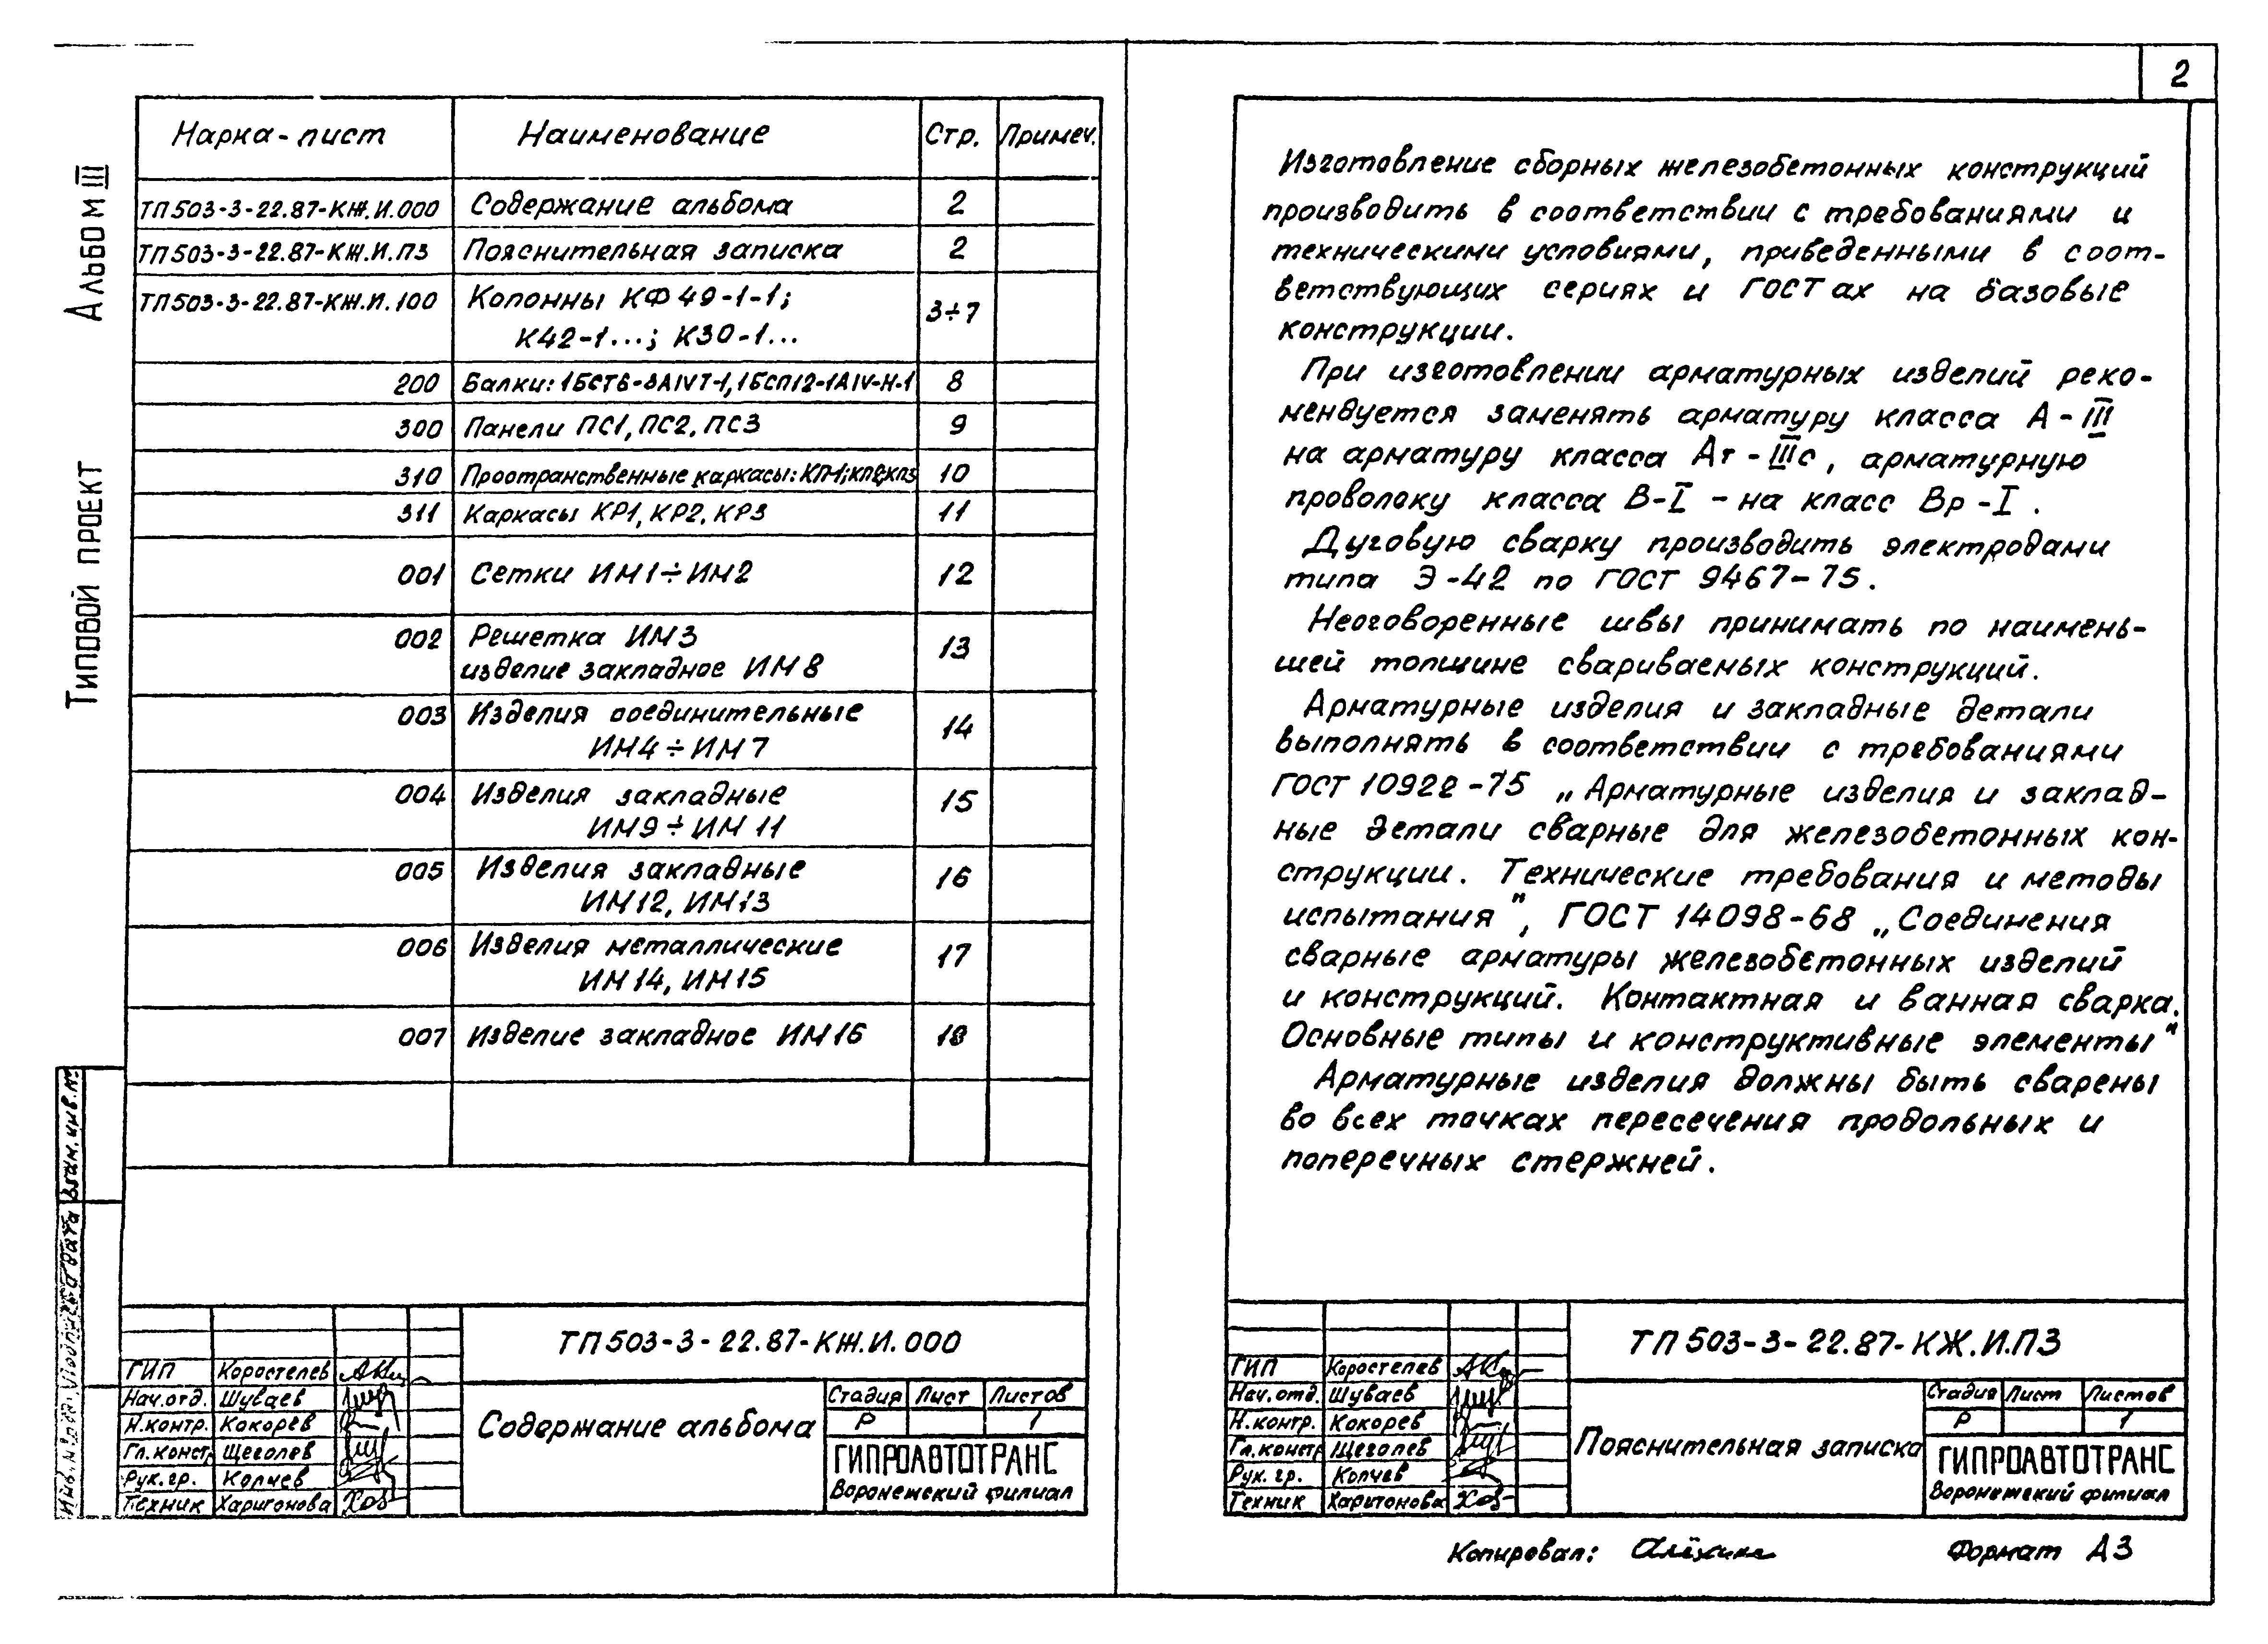 2
Альбом III
Типовой проект
Марка-лист Наименование Стр. Примеч.
ТП503-3-22.87-КЖ.И.000 Содержание альбома 2
ТП503-3-22.87-КЖ.И.ПЗ Пояснительная записка 2
ТП503-3-22.87-КЖ.И.100 Колонны КФ49-1-1; 3÷7
К42-1...; К30-1...
200 Балки: 1БСТ6-3АIVТ-1, 1БСП12-1АIV-Н-1 8
300 Панели ПС1, ПС2, ПС3 9
310 Пространственные каркасы: КП-1; КП2; КП3 10
311 Каркасы КР1, КР2, КР3 11
001 Сетки ИМ1÷ИМ2 12
002 Решетка ИМ3 13
изделие закладное ИМ8
003 Изделия соединительные 14
ИМ4÷ИМ7
004 Изделия закладные 15
ИМ9÷ИМ11
005 Изделия закладные 16
ИМ12, ИМ13
006 Изделия металлические 17
ИМ14, ИМ15
007 Изделие закладное ИМ16 18
Взам. инв. №
ТП503-3-22.87-КЖ.И.000
ГИП Коростелев
Нач.отд. Шуваев
Н.контр. Кокорев
Гл.констр. Щеголев
Рук.гр. Колчев
Техник Харитонова
Содержание альбома
Стадия Лист Листов
Р 1
ГИПРОАВТОТРАНС
Воронежский филиал
Изготовление сборных железобетонных конструкций
производить в соответствии с требованиями и
техническими условиями, приведенными в соот-
ветствующих сериях и ГОСТах на базовые
конструкции.
При изготовлении арматурных изделий реко-
мендуется заменять арматуру класса А-III
на арматуру класса Ат-IIIс, арматурную
проволоку класса В-I - на класс Вр-I.
Дуговую сварку производить электродами
типа Э-42 по ГОСТ 9467-75.
Неоговоренные швы принимать по наимень-
шей толщине свариваемых конструкций.
Арматурные изделия и закладные детали
выполнять в соответствии с требованиями
ГОСТ 10922-75 „Арматурные изделия и заклад-
ные детали сварные для железобетонных кон-
струкции. Технические требования и методы
испытания", ГОСТ 14098-68 „Соединения
сварные арматуры железобетонных изделий
и конструкций. Контактная и ванная сварка.
Основные типы и конструктивные элементы"
Арматурные изделия должны быть сварены
во всех точках пересечения продольных и
поперечных стержней.
ТП503-3-22.87-КЖ.И.ПЗ
ГИП Коростелев
Нач.отд. Шуваев
Н.контр. Кокорев
Гл.констр Щеголев
Рук. гр. Колчев
Техник Харитонова
Пояснительная записка
Стадия Лист Листов
Р 1
ГИПРОАВТОТРАНС
Воронежский филиал
Копировал: Алёхина Формат А3